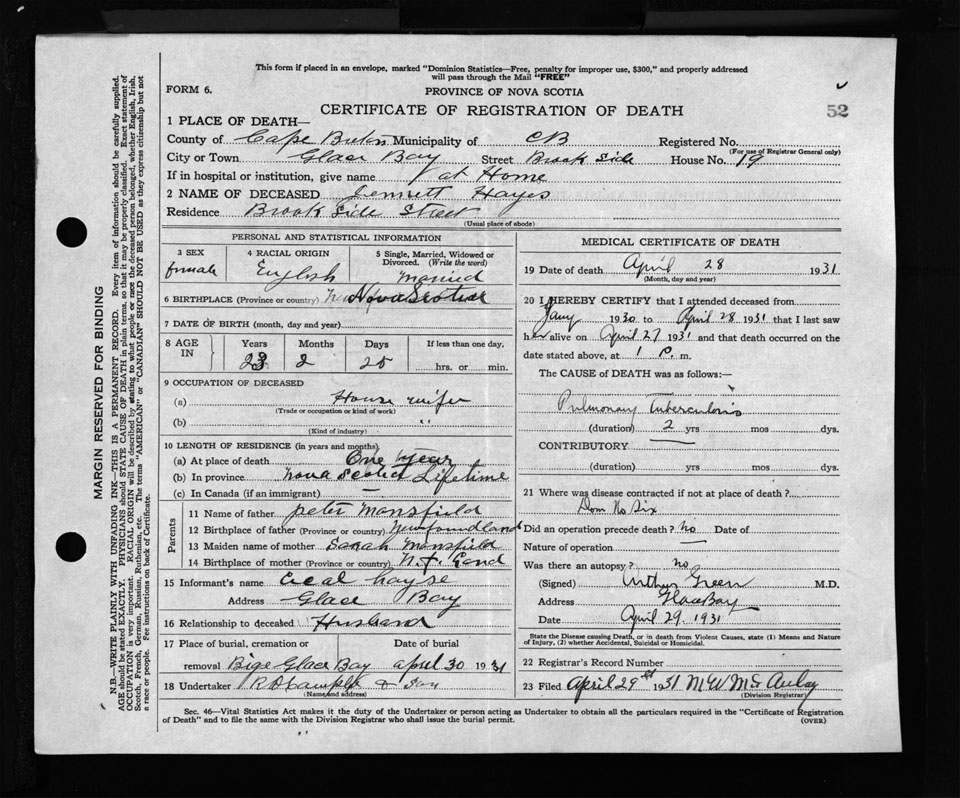 This form if placed in an envelope, marked "Dominion Statistics—Free, penalty for improper use, $300," and properly addressed
will pass through the Mail "FREE"
FORM 6.
PROVINCE OF NOVA SCOTIA
CERTIFICATE OF REGISTRATION OF DEATH
52
1 PLACE OF DEATH—
County of Cape Breton Municipality of CB Registered No.
(For use of Registrar General only)
City or Town Glace Bay Street Brook Side House No. 19
If in hospital or institution, give name at Home
2 NAME OF DECEASED Jennett Hayes
Residence Brook Side Street
(Usual place of abode)
PERSONAL AND STATISTICAL INFORMATION
3 SEX female
4 RACIAL ORIGIN English
5 Single, Married, Widowed or Divorced. (Write the word) Married
6 BIRTHPLACE (Province or country) Nova Scotia
7 DATE OF BIRTH (month, day and year)
8 AGE IN
Years Months Days If less than one day,
23 2 25 hrs. or min.
9 OCCUPATION OF DECEASED
(a) House wife
(Trade or occupation or kind of work)
(b) "
(Kind of industry)
10 LENGTH OF RESIDENCE (in years and months)
(a) At place of death One year
(b) In province Nova Scotia Lifetime
(c) In Canada (if an immigrant) —
Parents
11 Name of father peter Mansfield
12 Birthplace of father (Province or country) Newfoundland
13 Maiden name of mother Sarah Mansfield
14 Birthplace of mother (Province or country) N.F. Land
15 Informant's name Cecal hayse
Address Glace Bay
16 Relationship to deceased Husband
17 Place of burial, cremation or removal Bige Glace Bay
Date of burial april 30 1931
18 Undertaker & Son
(Name and address)
MEDICAL CERTIFICATE OF DEATH
19 Date of death April 28 1931
(Month, day and year)
20 I HEREBY CERTIFY that I attended deceased from
Jany 1930 to April 28 1931 that I last saw
her alive on April 27 1931 and that death occurred on the
date stated above, at 1 P. m.
The CAUSE of DEATH was as follows:—
Pulmonary Tuberculosis
(duration) 2 yrs mos dys.
CONTRIBUTORY
(duration) yrs mos dys.
21 Where was disease contracted if not at place of death?
Dom No Six
Did an operation precede death? No Date of
Nature of operation
Was there an autopsy? No
(Signed) Arthur Green M.D.
Address Glace Bay
Date April 29. 1931
State the Disease causing Death, or in death from Violent Causes, state (1) Means and Nature
of Injury, (2) whether Accidental, Suicidal or Homicidal.
22 Registrar's Record Number
23 Filed April 29st 1931 M W McAulay
(Division Registrar)
Sec. 46—Vital Statistics Act makes it the duty of the Undertaker or person acting as Undertaker to obtain all the particulars required in the "Certificate of Registration
of Death" and to file the same with the Division Registrar who shall issue the burial permit.
(OVER)
MARGIN RESERVED FOR BINDING
N.B.—WRITE PLAINLY WITH UNFADING INK—THIS IS A PERMANENT RECORD. Every item of information should be carefully supplied.
AGE should be stated EXACTLY. PHYSICIANS should STATE CAUSE OF DEATH in plain terms, so that it may be properly classified. Exact statement of
OCCUPATION is very important. RACIAL ORIGIN will be described by stating to what people or race the deceased person belonged, whether English, Irish,
Scotch, French, German, Russian, Ruthenian, etc. The terms "AMERICAN" or "CANADIAN" SHOULD NOT BE USED as they express citizenship but not
a race or people. See instructions on back of Certificate.